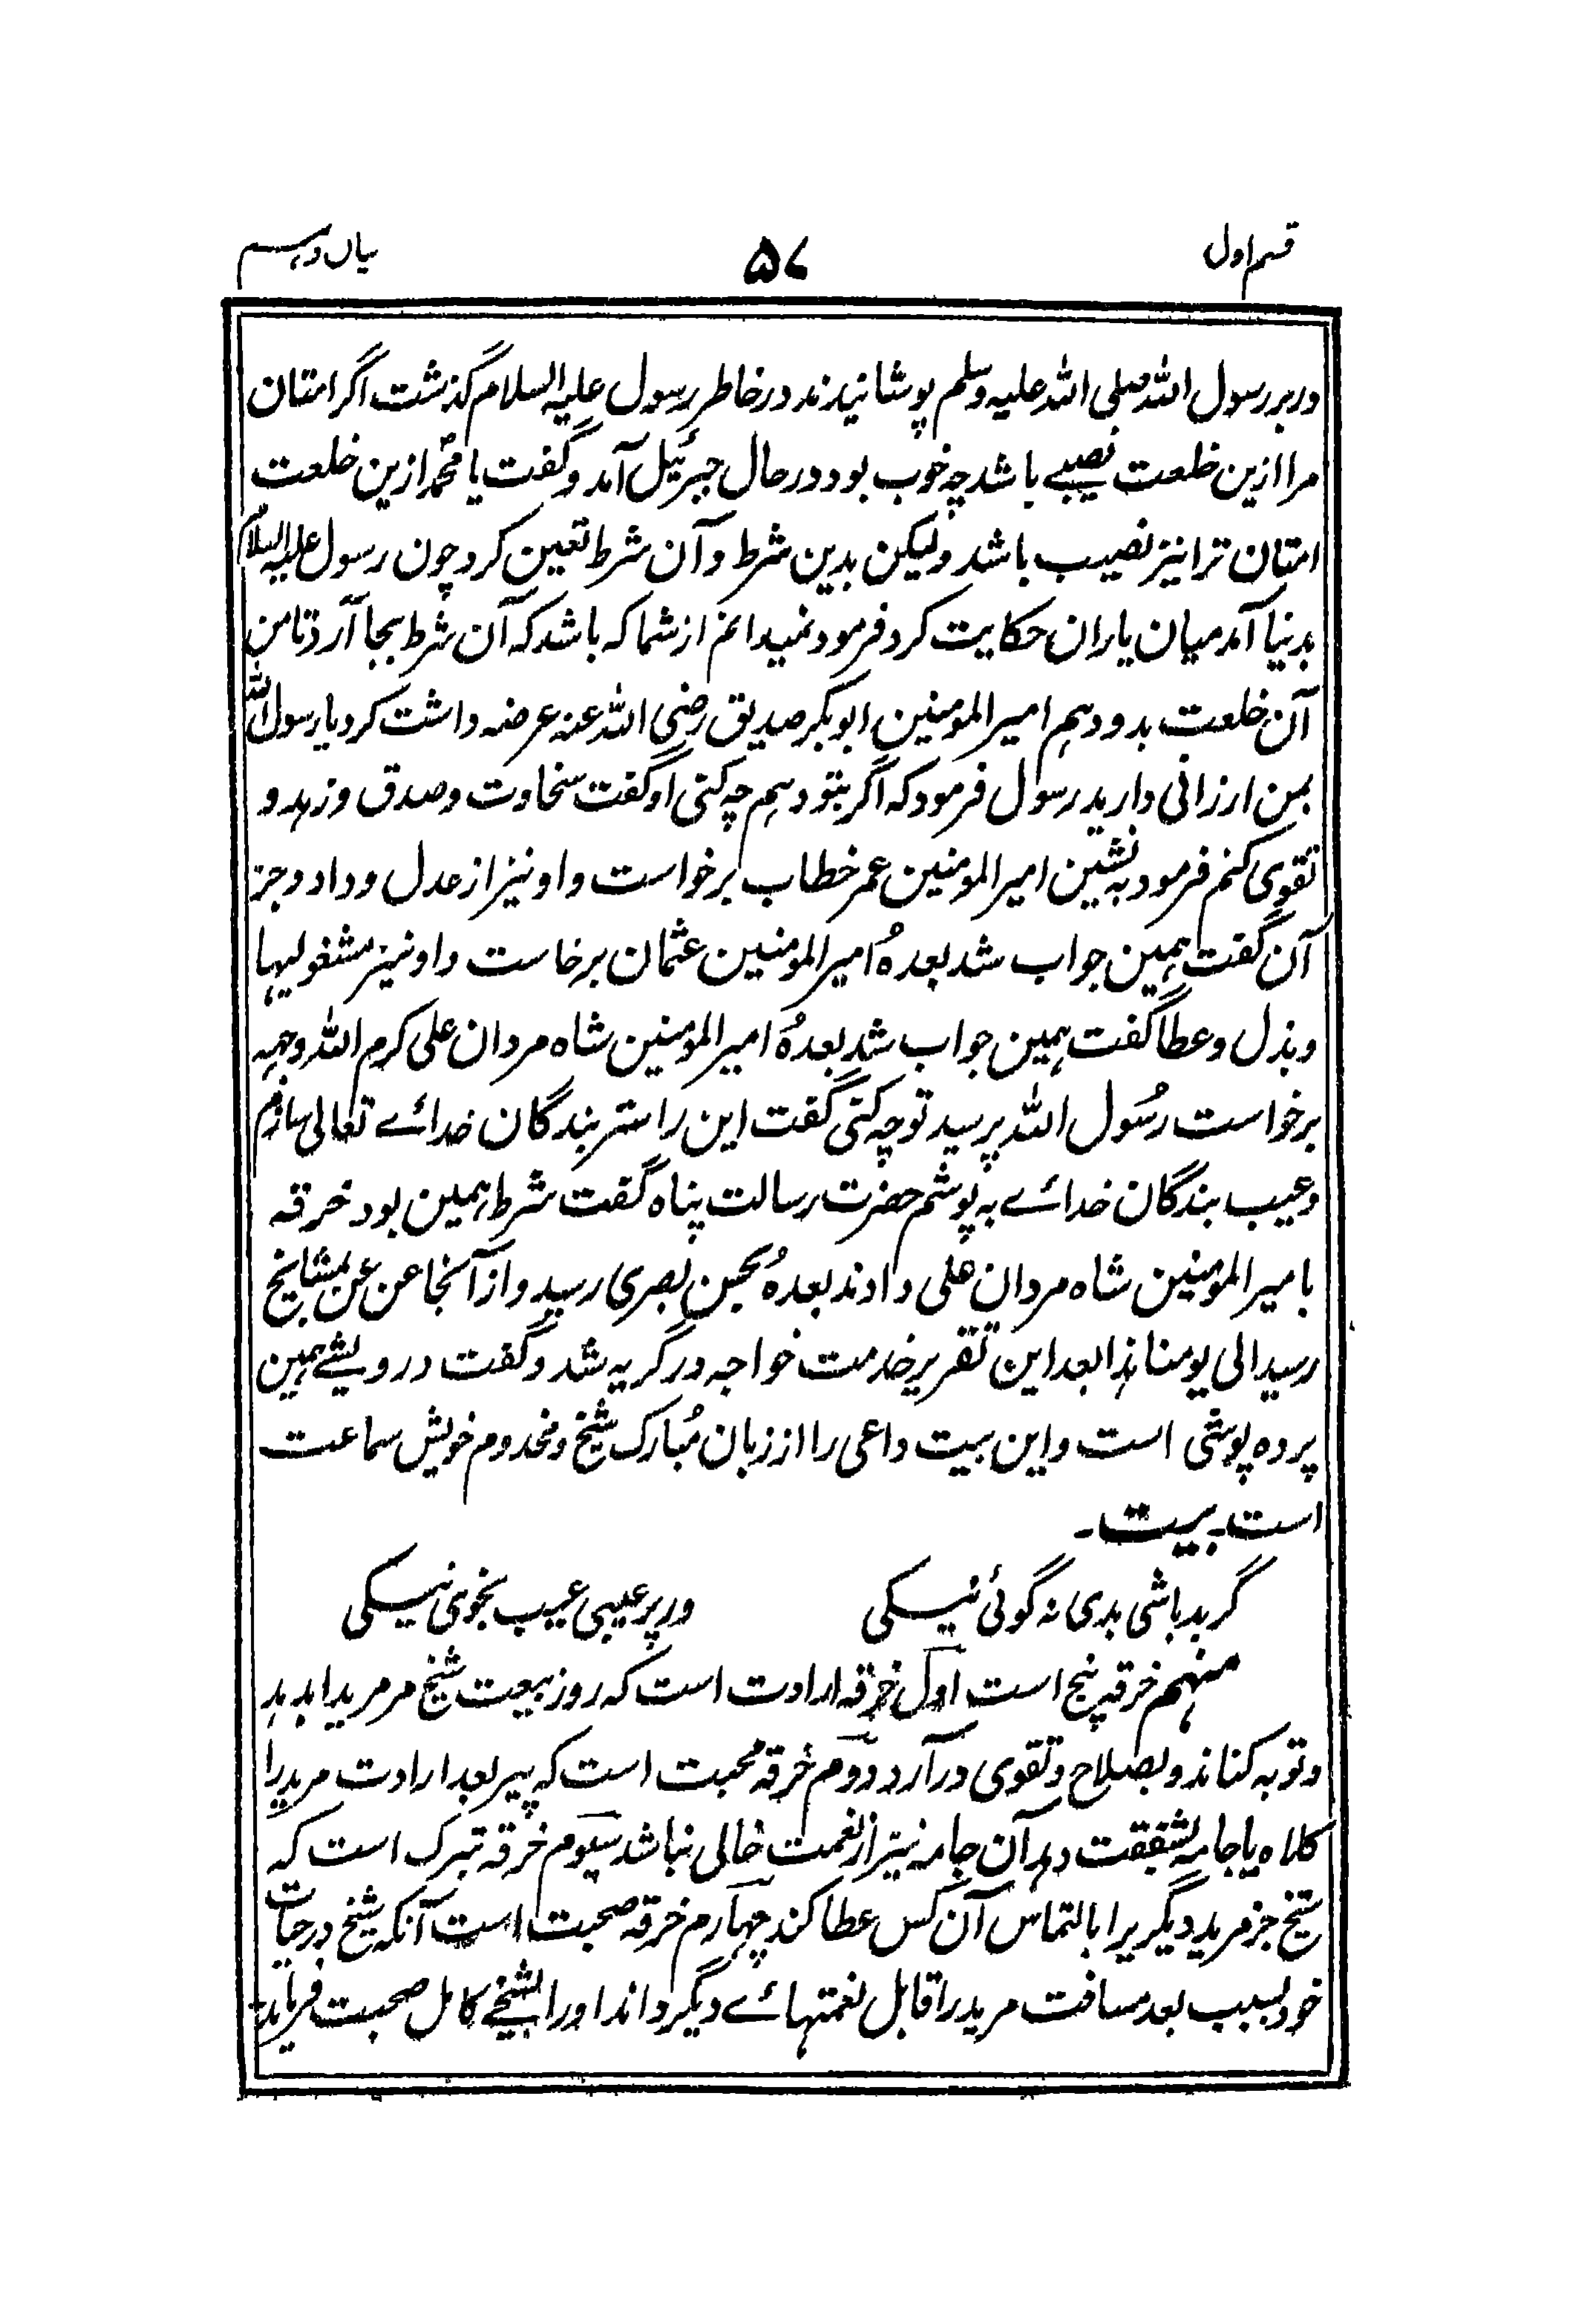 قسم اول ۵۷ بیان دہم
در بر رسول اللہ صلی اللہ علیہ وسلم پوشانیدند در خاطر رسول علیہ السلام گذشت اگر امتان
مرا ازین خلعت نصیبے باشد چہ خوب بود در حال جبرئیل آمد و گفت یا محمد ازین خلعت
امتان ترا نیز نصیب باشد ولیکن بدین شرط و آن شرط تعین کرد چون رسول علیہ السلام
بدنیا آمد میان یاران حکایت کرد فرمود نمیدانم از شما کہ باشد کہ آن شرط بجا آرد تا من
آن خلعت بدو دہم امیر المومنین ابوبکر صدیق رضی اللہ عنہ عرضہ داشت کرد یا رسول اللہ
بمن ارزانی دارید رسول فرمود کہ اگر بتو دہم چہ کنی او گفت سخاوت و صدق و زہد و
تقوی کنم فرمود بہ نشین امیر المومنین عمر خطاب برخواست و او نیز از عدل و داد و جز
آن گفت ہمین جواب شد بعدہُ امیر المومنین عثمان برخاست و او نیز مشغولیہا
و بذل و عطا گفت ہمین جواب شد بعدہُ امیر المومنین شاہ مردان علی کرم اللہ وجہہ
برخواست رسُول اللہ پرسید تو چہ کنی گفت این را ستر بندگان خدائے تعالی سازم
و عیب بندگان خدائے بہ پوشم حضرت رسالت پناہ گفت شرط ہمین بود خرقہ
با میر المومنین شاہ مردان علی دادند بعدہُ بحسن بصری رسید و از آنجا عن عن بمشایخ
رسید الی یومنا ہذا بعد این تقریر خدمت خواجہ در گریہ شد و گفت درویشے ہمین
پردہ پوشی است و این بیت داعی را از زبان مُبارک شیخ و مخدوم خویش سماعت
است ۔ بیت ۔
گر بد باشی بدی نہ گوئی نیکی ور پر عیبی عیب نجوئی نیکی
منہم خرقہ پنج است اول خرقہ ارادت است کہ روز بیعت شیخ مر مرید را بدہد
و توبہ کناند و بصلاح و تقوی در آرد دوم خرقہ محبت است کہ پیر بعد ارادت مرید را
کلاہ یا جامہ بشفقت دہد آن جامہ نیز از نعمت خالی نباشد سیوم خرقہ تبرک است کہ
شیخ جز مرید دیگریرا بالتماس آن کس عطا کند چہارم خرقہ صحبت است آنکہ شیخ در حیات
خود بسبب بعد مسافت مرید را قابل نعمتہائے دیگر داند او را بشیخے کامل صحبت فرماید